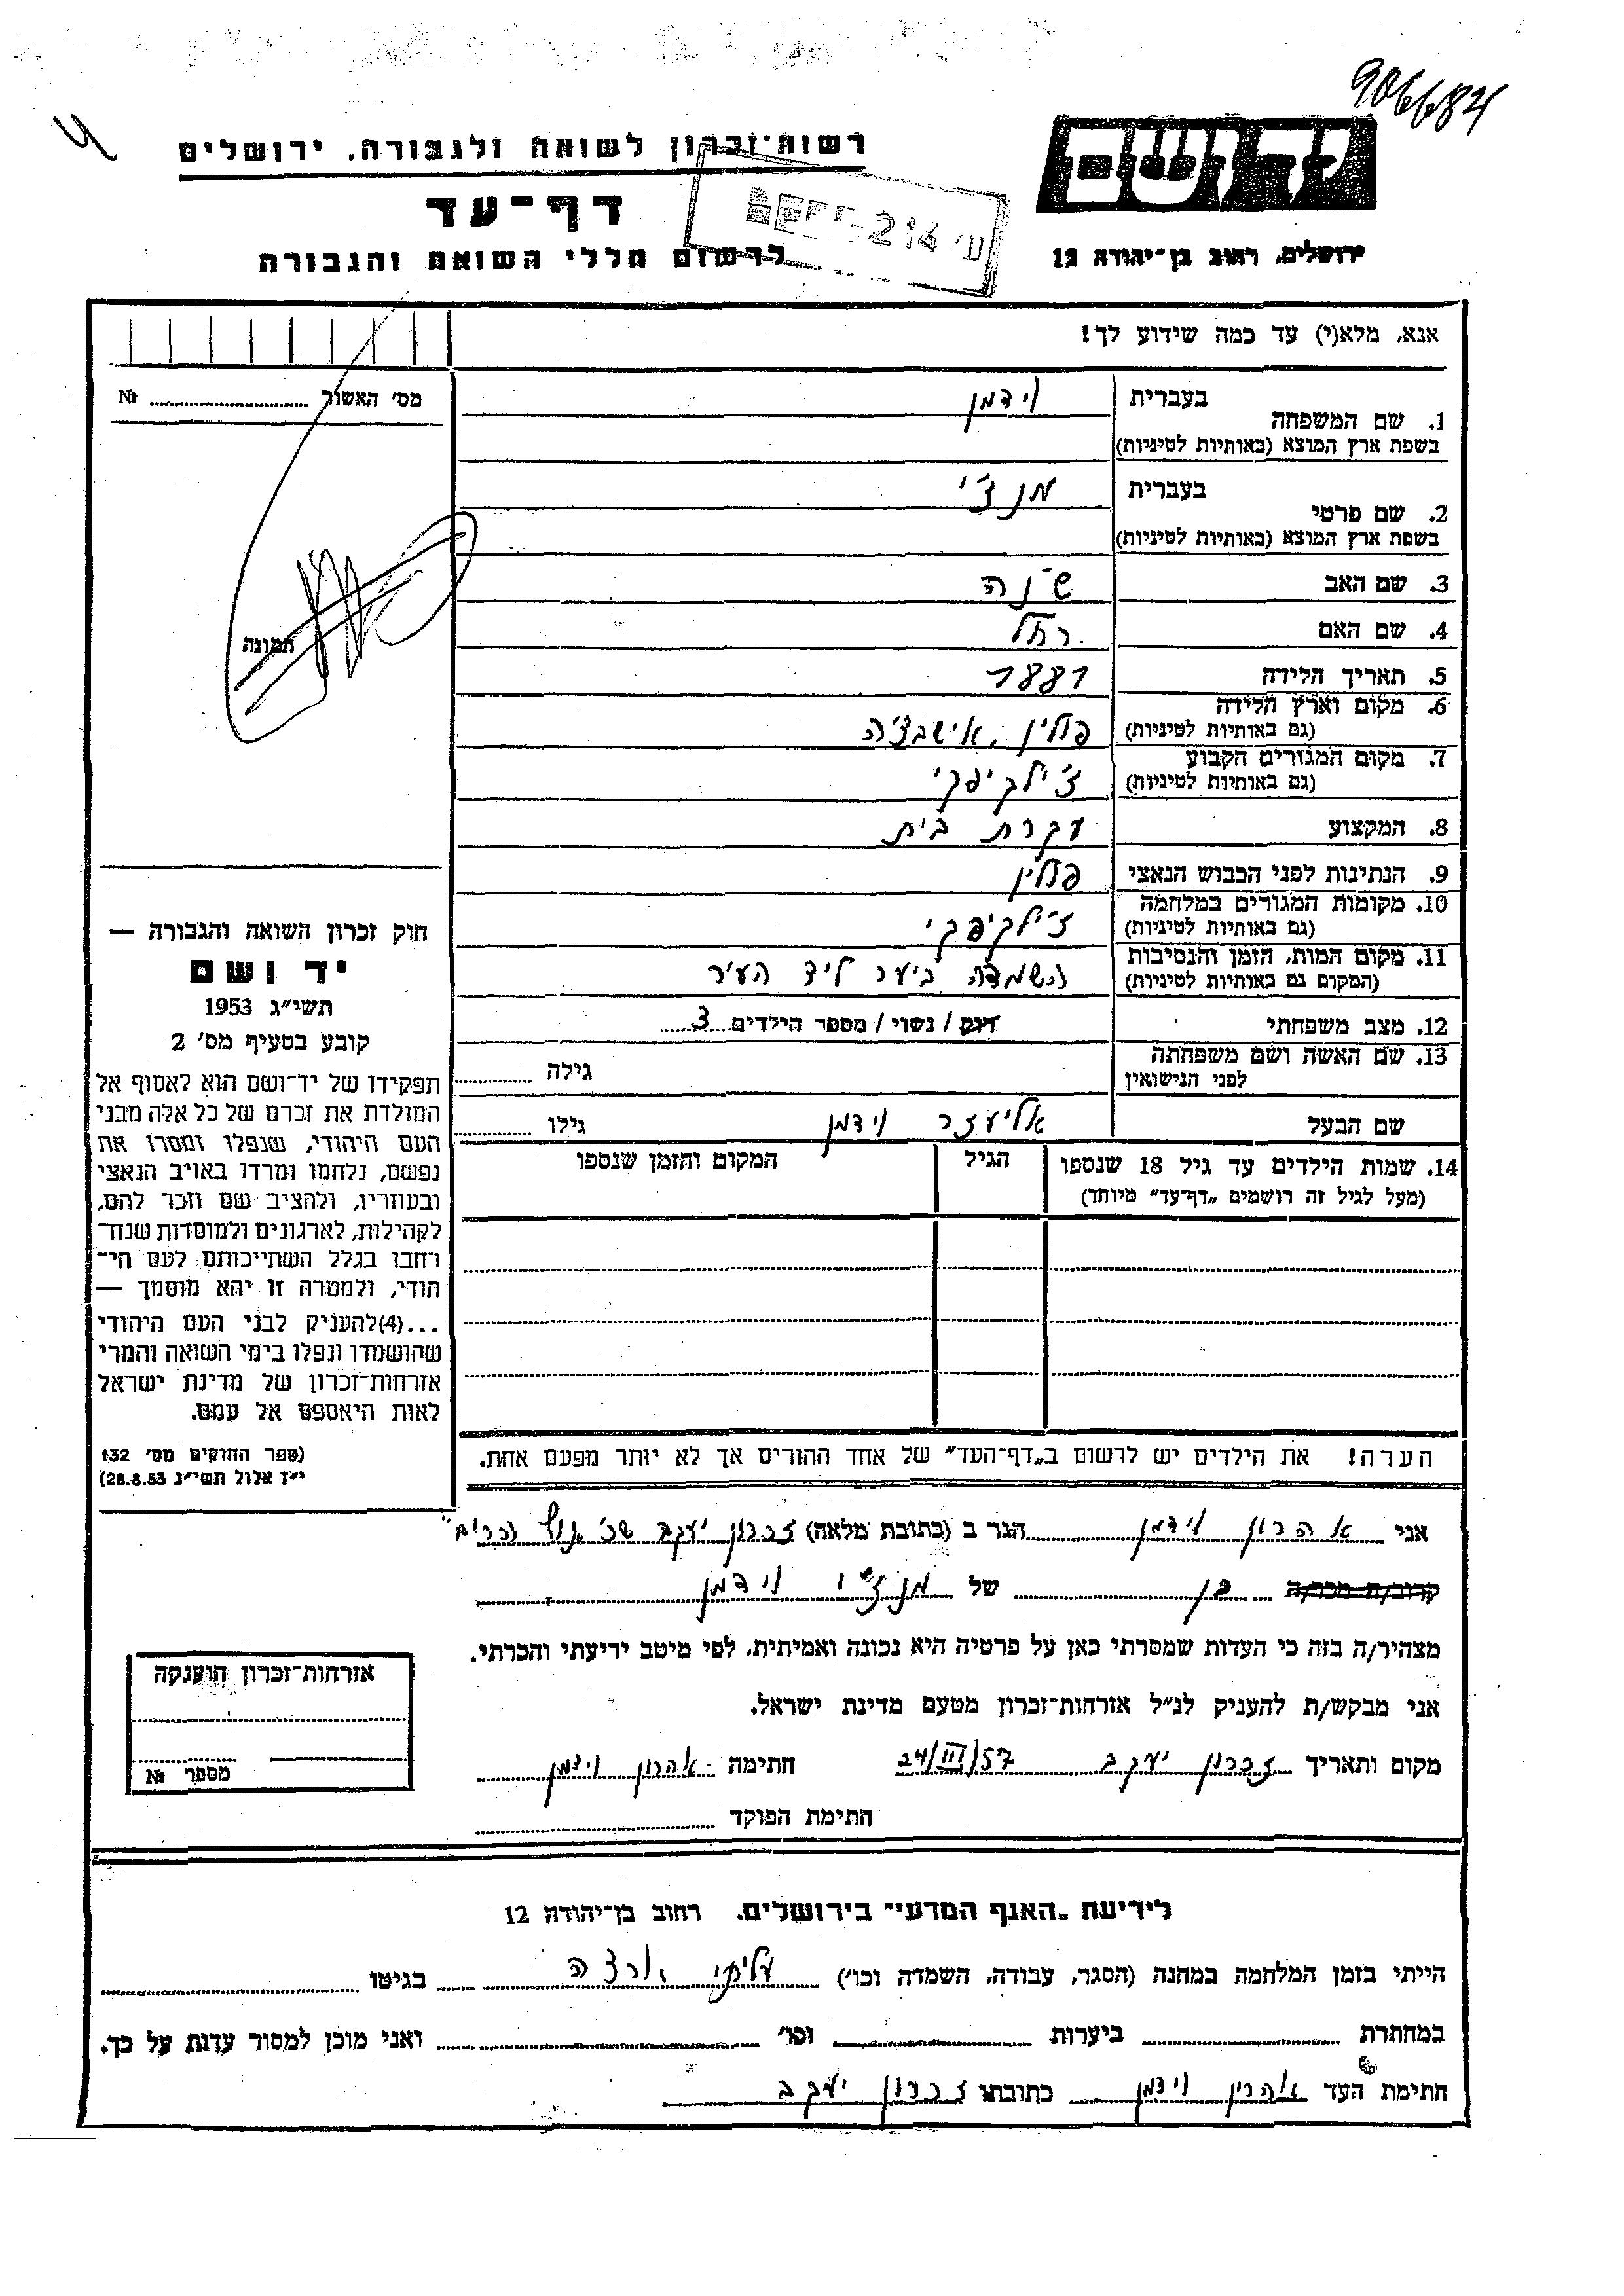 906684
רשות־זכרון לשואה ולגבורה, ירושלים
דף־עד
לרשום חללי השואה והגבורה
יד ושם
ירושלים, רחוב בן־יהודה 12
אנא, מלא(י) עד כמה שידוע לך!
מס' האשור № 
1. שם המשפחה בעברית וידמן
בשפת ארץ המוצא (באותיות לטיניות)
2. שם פרטי בעברית מנצ'י
בשפת ארץ המוצא (באותיות לטיניות)
3. שם האב
4. שם האם רחל
5. תאריך הלידה 1881
6. מקום וארץ הלידה (גם באותיות לטיניות) פולין, אישבצ'ה
7. מקום המגורים הקבוע (גם באותיות לטיניות)
8. המקצוע עקרת בית
9. הנתינות לפני הכבוש הנאצי פולין
10. מקומות המגורים במלחמה (גם באותיות לטיניות)
11. מקום המות, הזמן והנסיבות (המקום גם באותיות לטיניות) הושמדה ביער ליד העיר
12. מצב משפחתי רווק / נשוי / מספר הילדים 3
13. שם האשה ושם משפחתה לפני הנישואין גילה
שם הבעל אליעזר וידמן גילו
14. שמות הילדים עד גיל 18 שנספו הגיל המקום והזמן שנספו
(מעל לגיל זה רושמים „דף־עד" מיוחד)
תמונה
חוק זכרון השואה והגבורה —
יד ושם
תשי"ג 1953
קובע בסעיף מס' 2
תפקידו של יד־ושם הוא לאסוף אל
המולדת את זכרם של כל אלה מבני
העם היהודי, שנפלו ומסרו את
נפשם, נלחמו ומרדו באויב הנאצי
ובעוזריו, ולהציב שם וזכר להם,
לקהילות, לארגונים ולמוסדות שנח־
רחבו בגלל השתייכותם לעם הי־
הודי, ולמטרה זו יהא מוסמך —
...(4)להעניק לבני העם היהודי
שהושמדו ונפלו בימי השואה והמרי
אזרחות־זכרון של מדינת ישראל
לאות היאספם אל עמם.
(ספר החוקים מס' 132
י"ז אלול תשי"ג 28.8.53)
הערה! את הילדים יש לרשום ב„דף־העד" של אחד ההורים אך לא יותר מפעם אחת.
אני אהרון וידמן הגר ב (כתובת מלאה) זכרון יעקב
קרוב/ה מכר/ה בן של מנצ'י וידמן
מצהיר/ה בזה כי העדות שמסרתי כאן על פרטיה היא נכונה ואמיתית, לפי מיטב ידיעתי והכרתי.
אני מבקש/ת להעניק לנ"ל אזרחות־זכרון מטעם מדינת ישראל.
מקום ותאריך זכרון יעקב 24/III/57 חתימה אהרון וידמן
חתימת הפוקד
אזרחות־זכרון הוענקה
מספר №
לידיעת „האגף המדעי" בירושלים, רחוב בן־יהודה 12
הייתי בזמן המלחמה במחנה (הסגר, עבודה, השמדה וכו') עליתי ארצה בגיטו
במחתרת ביערות וכו' ואני מוכן למסור עדות על כך.
חתימת העד אהרון וידמן כתובתו זכרון יעקב